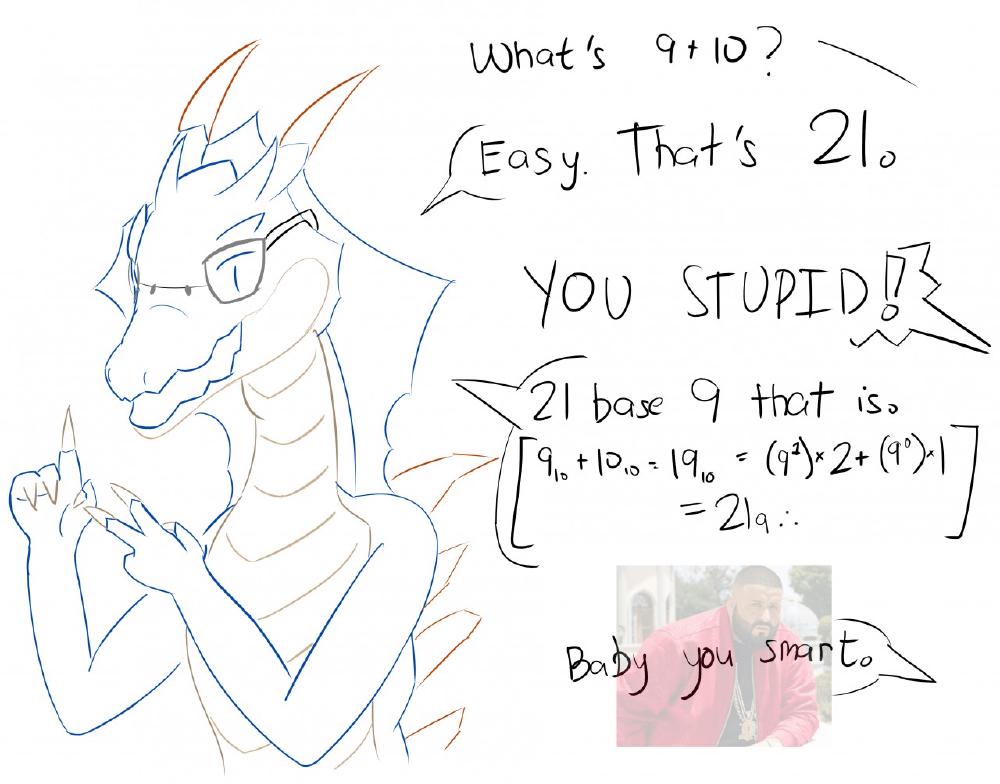 What's 9+10?
Easy. That's 21.
YOU STUPID!?
21 base 9 that is.
[9₁₀ + 10₁₀ = 19₁₀ = (9¹)×2+(9⁰)×1
= 21₉ ∴]
Baby you smart.